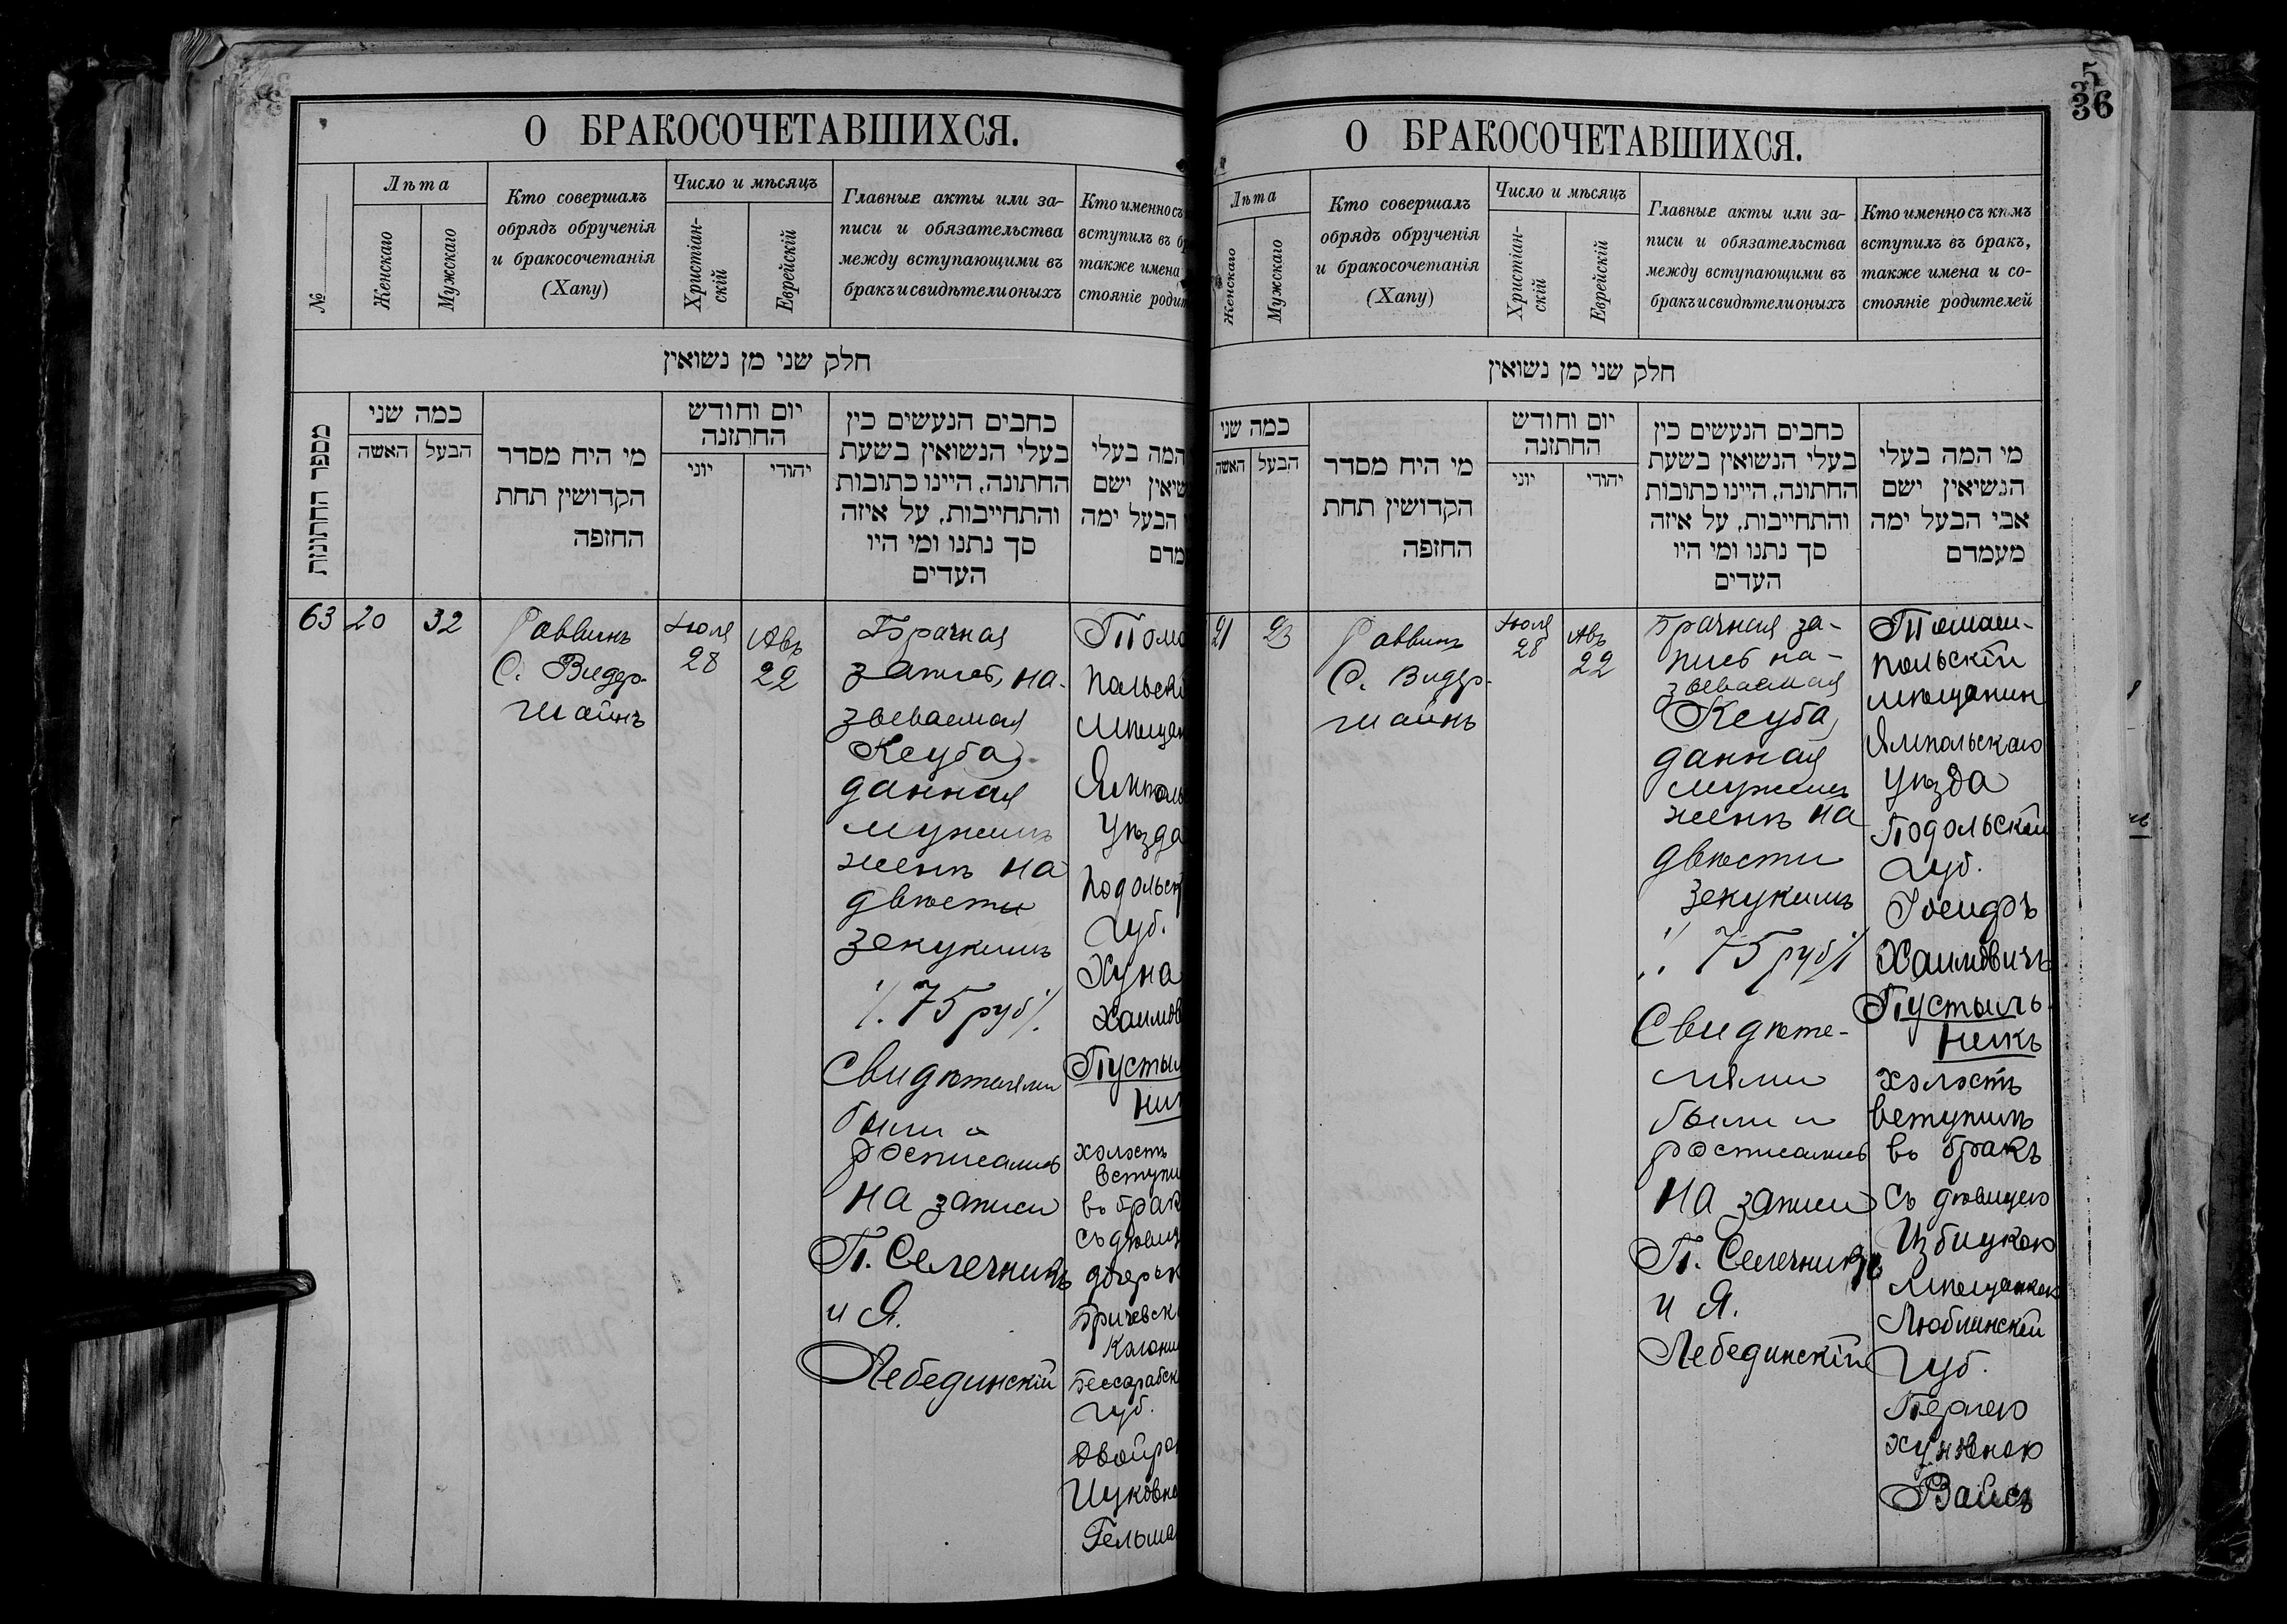 О БРАКОСОЧЕТАВШИХСЯ.
№
Лѣта
Женскаго
Мужскаго
Кто совершалъ
обрядъ обрученія
и бракосочетанія
(Хапу)
Число и мѣсяцъ
Христіан-
скій
Еврейскій
Главные акты или за-
писи и обязательства
между вступающими въ
бракъ и свидѣтели оныхъ
Кто именно съ
вступилъ въ б
также имена
стояніе роди
חלק שני מן נשואין
מספר החתונות
כמה שני
האשה
הבעל
מי היח מסדר
הקדושין תחת
החופה
יום וחודש
החתונה
יוני
יהודי
כתבים הנעשים כין
בעלי הנשואין בשעת
החתונה, היינו כתובות
והתחייבות, על איזה
סך נתנו ומי היו
העדים
המה בעלי
שיאין ישם
הבעל ימה
מדם
63
20
32
Раввинъ
С. Видер-
шайнъ
Іюля
28
Авъ
22
Брачная
запись, на-
зываемая
Ксуба,
данная
мужемъ
женѣ на
двѣсти
зекукимъ
75 руб.
Свидѣтелями
были и
росписались
на записи
П. Селечникъ
и Я.
Лебединскій
Тома
польскі
мѣщан
Ямполь
уѣзда
Подольск
губ.
Хуна
Хаимов
Пустыл
ник
холостъ
вступи
въ брак
съ дѣвиц
дочерью к
Бричевск
колони
Бессарабск
губ.
Двойро
Ицковно
Гельма
36
О БРАКОСОЧЕТАВШИХСЯ.
Лѣта
Женскаго
Мужскаго
Кто совершалъ
обрядъ обрученія
и бракосочетанія
(Хапу)
Число и мѣсяцъ
Христіан-
скій
Еврейскій
Главные акты или за-
писи и обязательства
между вступающими въ
бракъ и свидѣтели оныхъ
Кто именно съ кѣмъ
вступилъ въ бракъ,
также имена и со-
стояніе родителей
חלק שני מן נשואין
כמה שני
האשה
הבעל
מי היח מסדר
הקדושין תחת
החופה
יום וחודש
החתונה
יוני
יהודי
כתבים הנעשים כין
בעלי הנשואין בשעת
החתונה, היינו כתובות
והתחייבות, על איזה
סך נתנו ומי היו
העדים
מי המה בעלי
הנשיאין ישם
אבי הבעל ימה
מעמדם
21
23
Раввинъ
С. Видер-
шайнъ
Іюля
28
Авъ
22
Брачная за-
пись на-
зываемая
Ксуба,
данная
мужемъ
женѣ на
двѣсти
зекукимъ
75 руб.
Свидѣте-
лями
были и
росписались
на записи
П. Селечникъ
и Я.
Лебединскій
Томаш-
польскій
мѣщанин
Ямпольскаго
уѣзда
Подольской
губ.
Іосифъ
Хаимовичъ
Пустыль-
никъ
холостъ
вступилъ
въ бракъ
съ дѣвицею
Избицкою
мѣщанкою
Люблинской
губ.
Перлею
Хуновною
Вайсъ